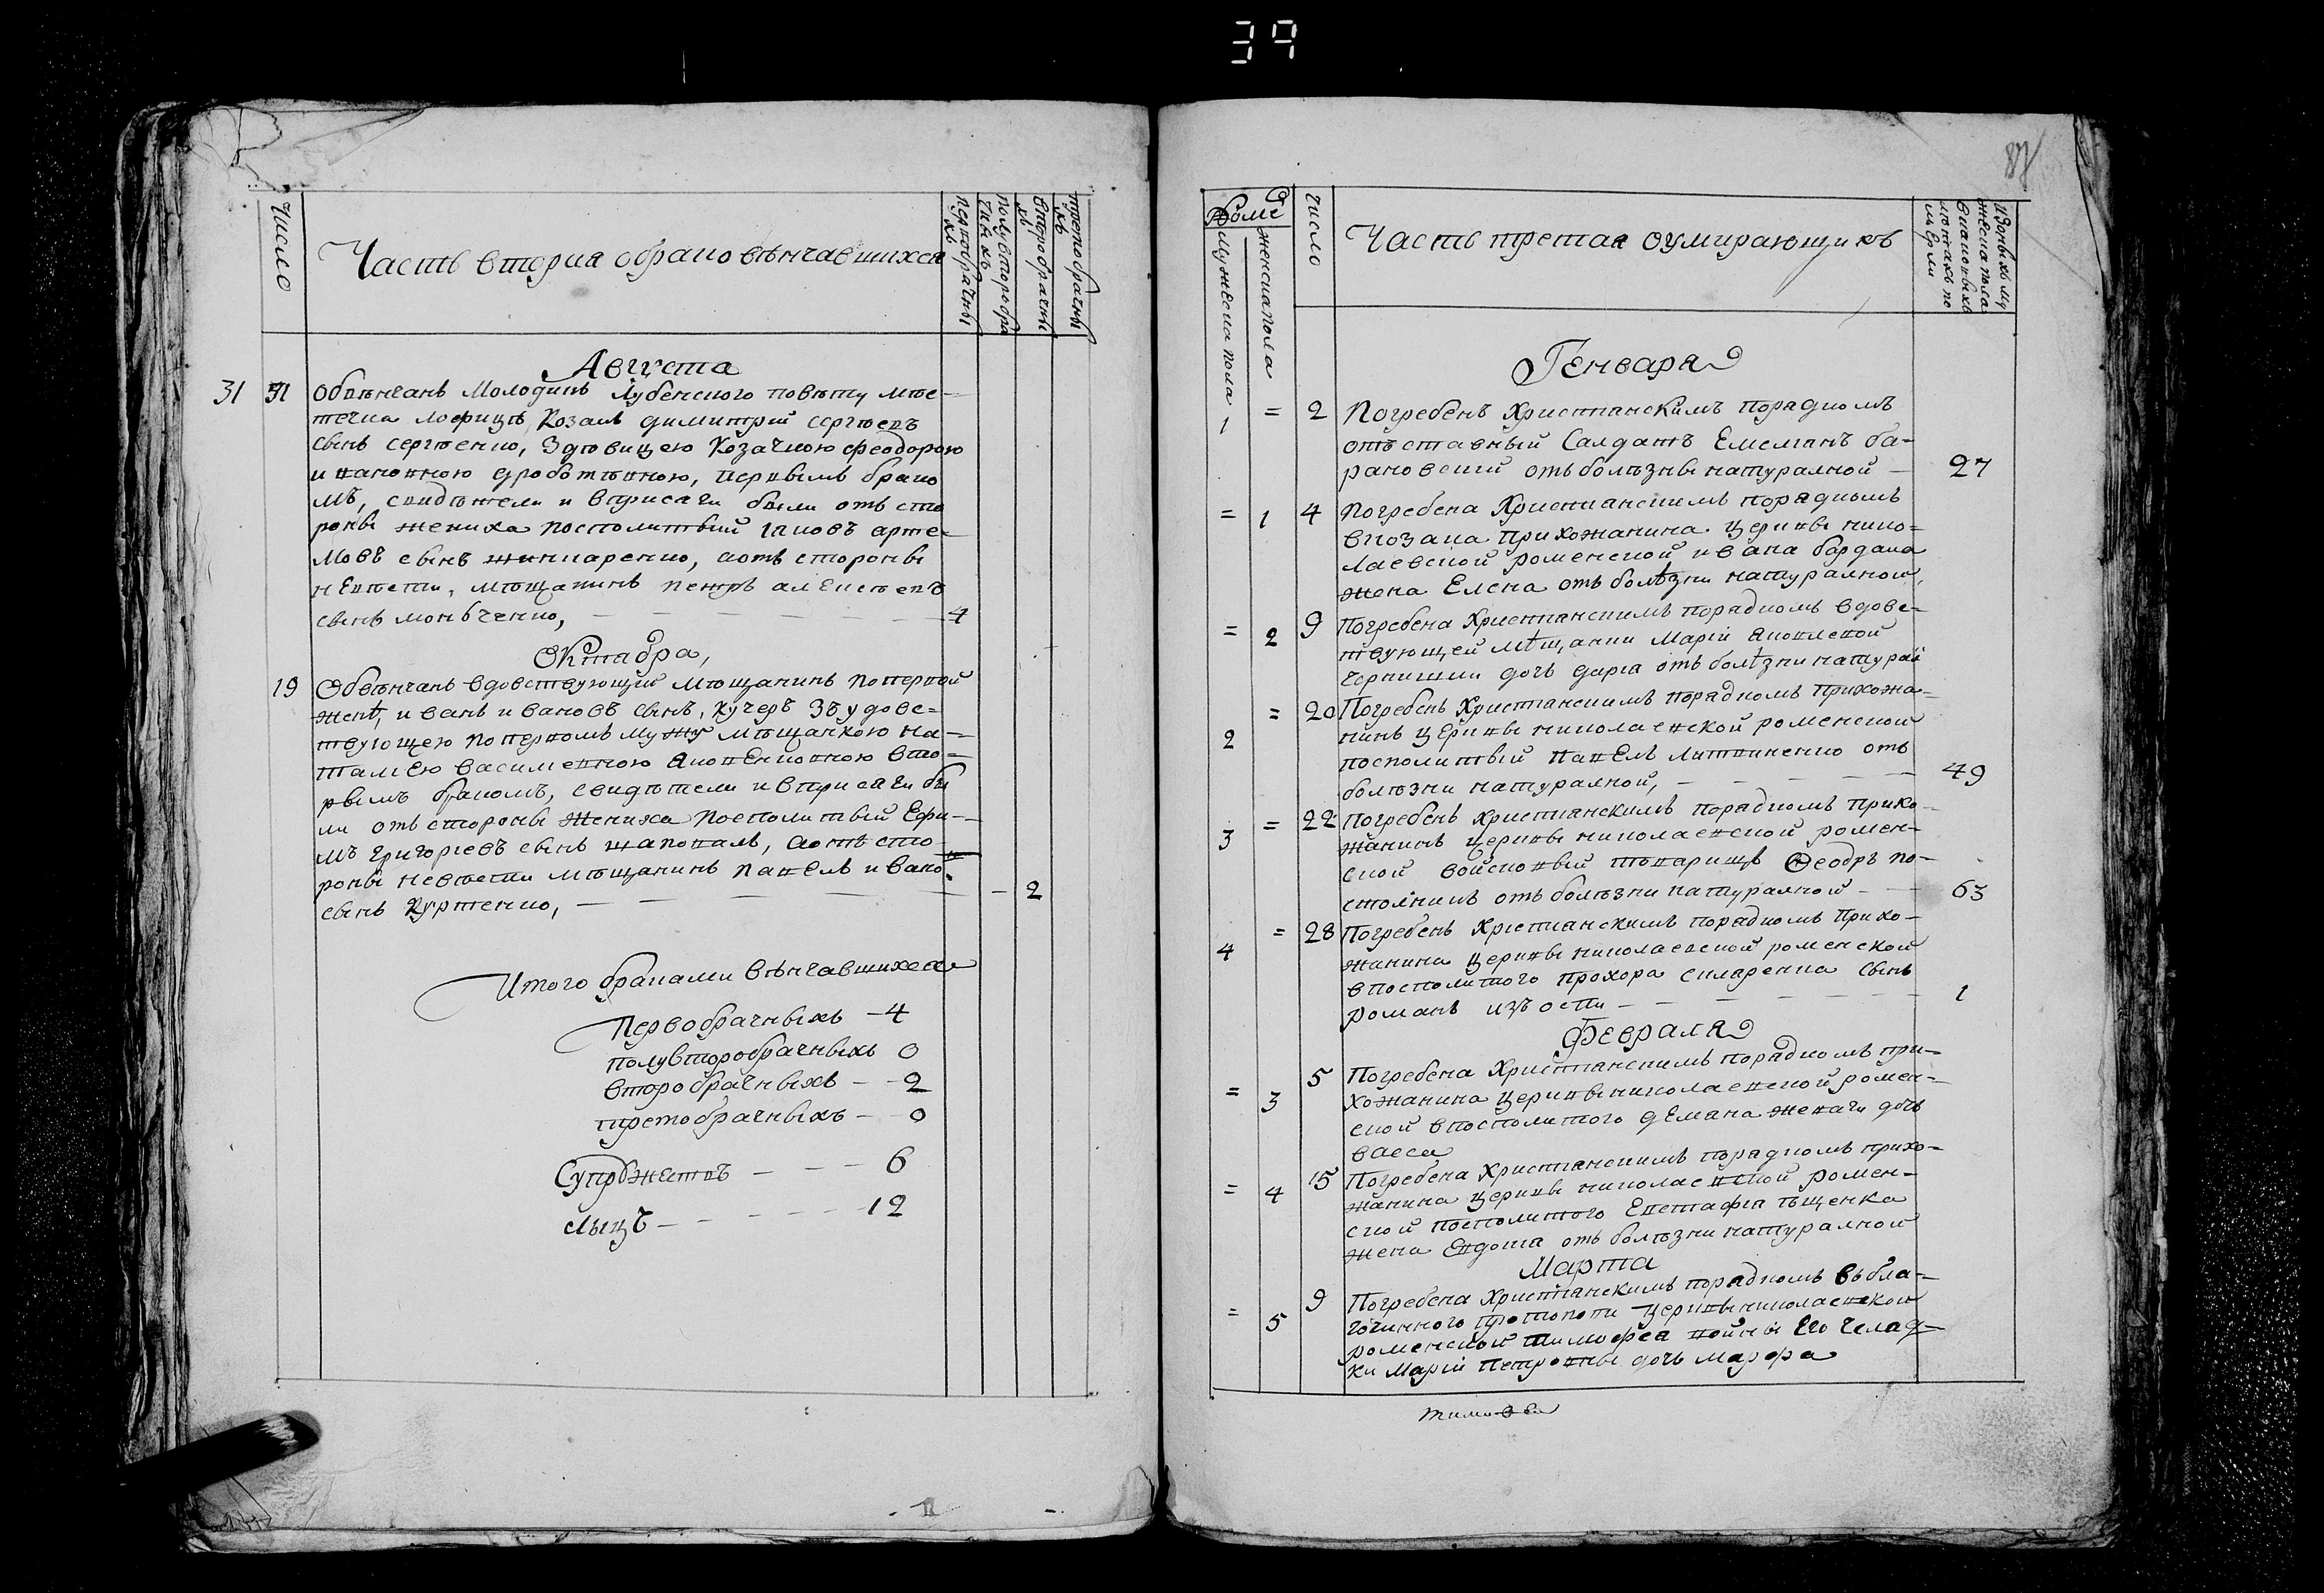 39
Число
Часть вторая обрако вѣнчавшихся
первобрачны
хъ
полувторобра
чныхъ
второбрачны
хъ
третобрачны
хъ
Августа
31 31 Обвѣнчанъ Молодикъ Лубенского повѣту мѣс-
течка лофицѣ, Козакъ димитрій сергѣевъ
сынъ сергѣенко, Здовицею Козачкою феодорою
ивановною дробѣтковною, первымъ брако
мъ, свидѣтели и вприсяги были отъ сто
роны жениха посполитый іаковъ арте-
мовъ сынъ, аотъ стороны
невѣсти, мѣщанинъ петръ алексѣевъ
сынъ монченко, 4
Октабра,
19 Обвѣнчанъ вдовствующій мѣщанинъ поперъвой
женѣ, иванъ ивановъ сынъ, кучеръ Зъ удовс-
твующею поперъвомъ мужу мѣщанкою на-
талѣею василевною яковенковною вто-
рымъ бракомъ, свидѣтели ивприсяги бы
ли отъ стороны жениха посполитый Ефи-
мъ григоріевъ сынъ шаповалъ, аотъ сто-
роны невѣсти мѣщанинъ павелъ ивано-
сынъ куртенко, 2
Итого браками вѣнчавшихся
Первобрачныхъ - 4
полувторобрачныхъ 0
второбрачныхъ - - 2
третобрачныхъ - 0
Супружествъ - - - 6
лыцъ - - - - - 12
87
Коме
Мужеска пола
женска пола
число
Часть третая оумирающихъ
Генваря
1 = 2 Погребенъ Христианскимъ порадкомъ
отъставный Салдатъ Емелианъ ба-
рановский отъ болѣзны натуралной - 27
= 1 4 Погребена Христианскимъ порядкомъ
вкозака прихожанина церквы нико-
лаевской роменской ивана бардака
жена Елена отъ болѣзни натуралной,
= 2 9 Погребена Христианскимъ порадкомъ вдовс-
твующей мѣщанки Маріи яковлевой
дочъ дарія отъ болѣзни натурал
2 = 20 Погребенъ Христианскимъ порадкомъ прихожа-
нинъ церквы николаевской роменской
посполитый павелъ литвиненко отъ
болѣзни натуралной, 49
3 = 22 погребенъ христианскимъ порадкомъ прихо-
жанинъ церквы николаевской ромен-
ской войсковый товарищъ Феодръ по-
столникъ отъ болѣзни натуралной - 63
4 = 28 Погребенъ Христианскимъ порадкомъ прихо-
жанина церквы николаевской роменской
впосполитого прохора скляренка сынъ
романъ изъ оспи 1
Февраля
= 3 5 Погребена Христианскимъ порадкомъ при-
хожанина церквы николаевской ромен-
ской впосполитого демяна дочъ
васса
= 4 15 Погребена Христианскимъ порадкомъ прихо-
жанина церквы николаевской ромен-
ской посполитого Евстафія
жена Евдокия отъ болѣзни натуралной
Марта
= 5 9 Погребена Христианскимъ порадкомъ въ бла-
гочинного протопопи церквы николаевской
роменской тимофея его челад-
ки маріи петровны дочъ марфа